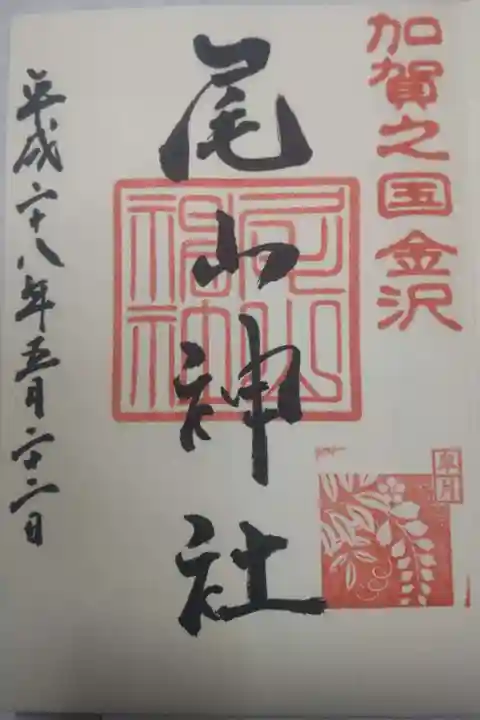 加賀之国金沢
皐月
尾山神社
尾山神社
平成二十八年五月二十二日